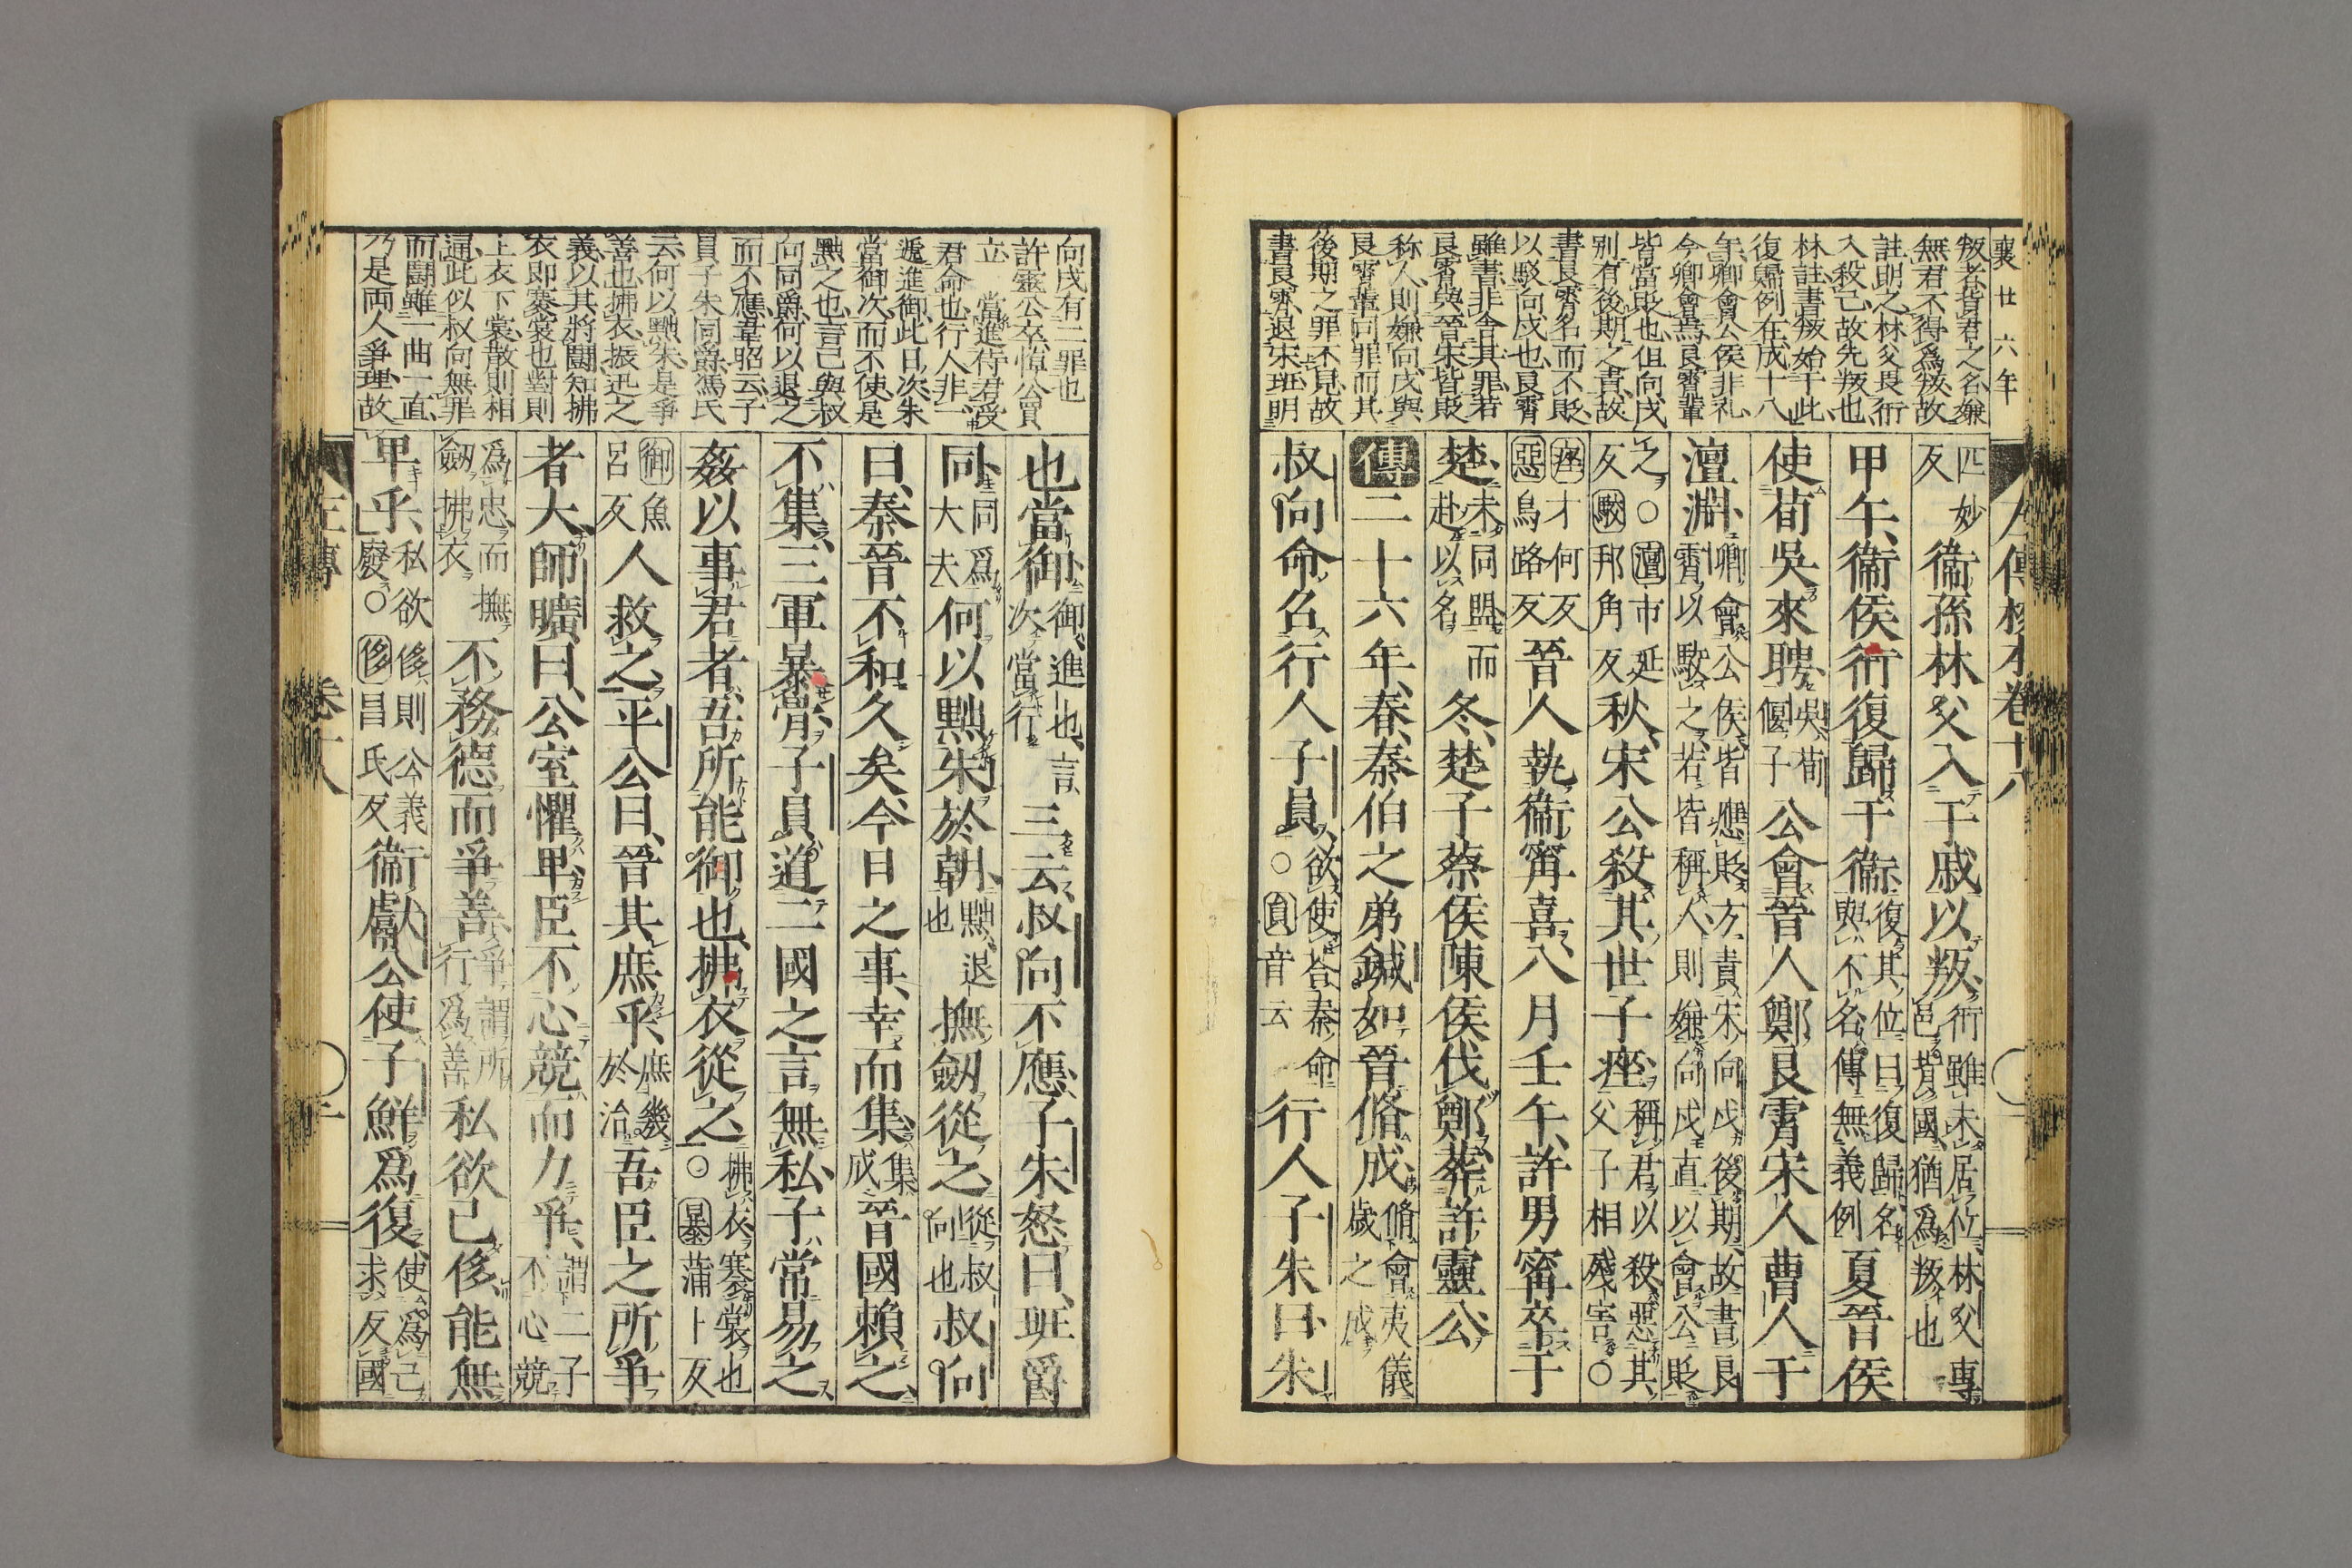 襄廿六年
叛者背君之名嫌
無君不得爲叛故
註明之林父畏衎
入殺己故先叛也
林註書叛始于此
復歸例在成十八
年卿會公侯非礼
今卿會焉良霄輩
皆當貶也但向戌
別有後期之責故
書良霄名而不貶
以駁向戌也良霄
雖書非舍其罪若
良霄與晉宋皆貶
称人則嫌向戌與
良霄輩同罪而其
後期之罪不見故
書良霄退宋班明
匹妙反衞孫林父入于戚以叛衎雖未居位林父專邑背國猶爲叛也
甲午衞侯衎復歸于衞復其位曰復歸名與不名傳無義例夏晉侯
使荀吳來聘吳荀偃子公會晉人鄭良霄宋人曹人于
澶淵卿會公侯皆應貶方責宋向戌後期故書良霄以駮之若皆稱人則嫌向戌直以會公貶
之○澶市延反駮邦角反秋宋公殺其世子痤稱君以殺惡其父子相殘害○
痤才何反惡烏路反晉人執衞甯喜八月壬午許男甯卒于
楚未同盟而赴以名冬楚子蔡侯陳侯伐鄭葬許靈公
傳二十六年春秦伯之弟鍼如晉脩成脩會夷儀歲之成
叔向命召行人子員欲使荅秦命○員音云行人子朱曰朱
向戌有二罪也
許靈公卒悼公買
立 當進侍君受
君命也行人非一
遞進御此日次朱
當御次而不使是
黜之也言己與叔
向同爵何以退之
而不應韋昭云子
員子朱同爵馮氏
云何以黜朱是爭
善也拂衣振迅之
義以其將闘知拂
衣即褰裳也對則
上衣下裳散則相
通此似叔向無罪
而闘雖一曲一直
乃是両人爭理故
也當御御進也言次當行三云叔向不應子朱怒曰班爵
同同爲大夫何以黜朱於朝黜退也撫劒從之從叔向也叔向
曰秦晉不和久矣今日之事幸而集集成晉國賴之
不集三軍暴骨子員道二國之言無私子常易之
姦以事君者吾所能御也拂衣從之拂衣褰裳也○暴蒲卜反
御魚呂反人救之平公曰晉其庶乎庶幾於治吾臣之所爭
者大師曠曰公室懼卑臣不心競而力爭謂二子不心競
爲忠而撫劒拂衣不務德而爭善爭謂所行爲善私欲已侈能無
卑乎私欲侈則公義廢○侈昌氏反衞獻公使子鮮爲復使爲己求反國